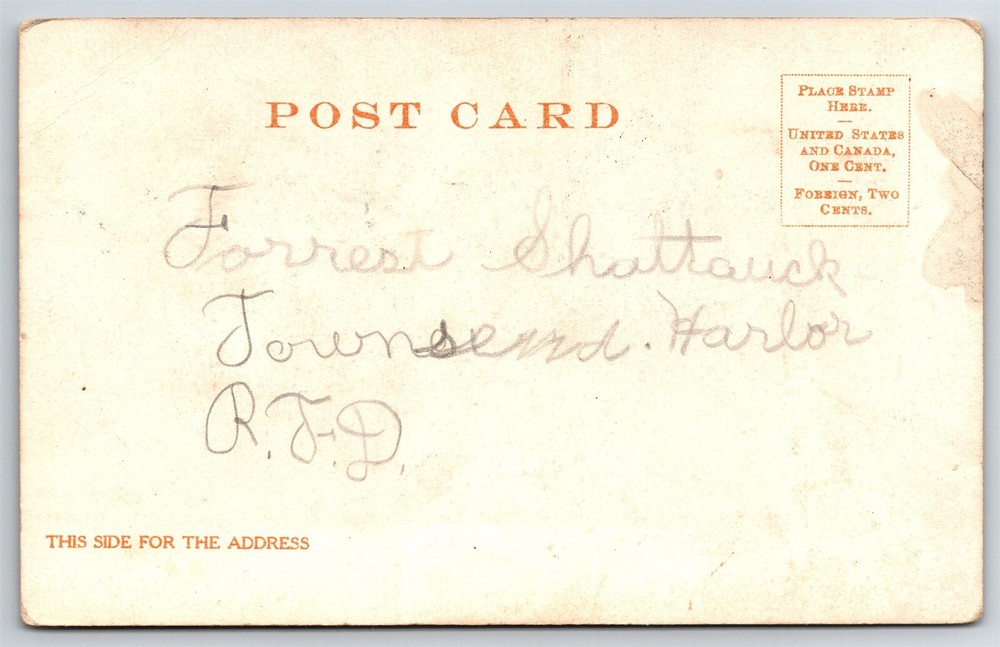 POST CARD
PLACE STAMP
HERE.
UNITED STATES
AND CANADA,
ONE CENT.
FOREIGN, TWO
CENTS.
Forrest Shattauck
Townsend. Harlor
R.F.D.
THIS SIDE FOR THE ADDRESS